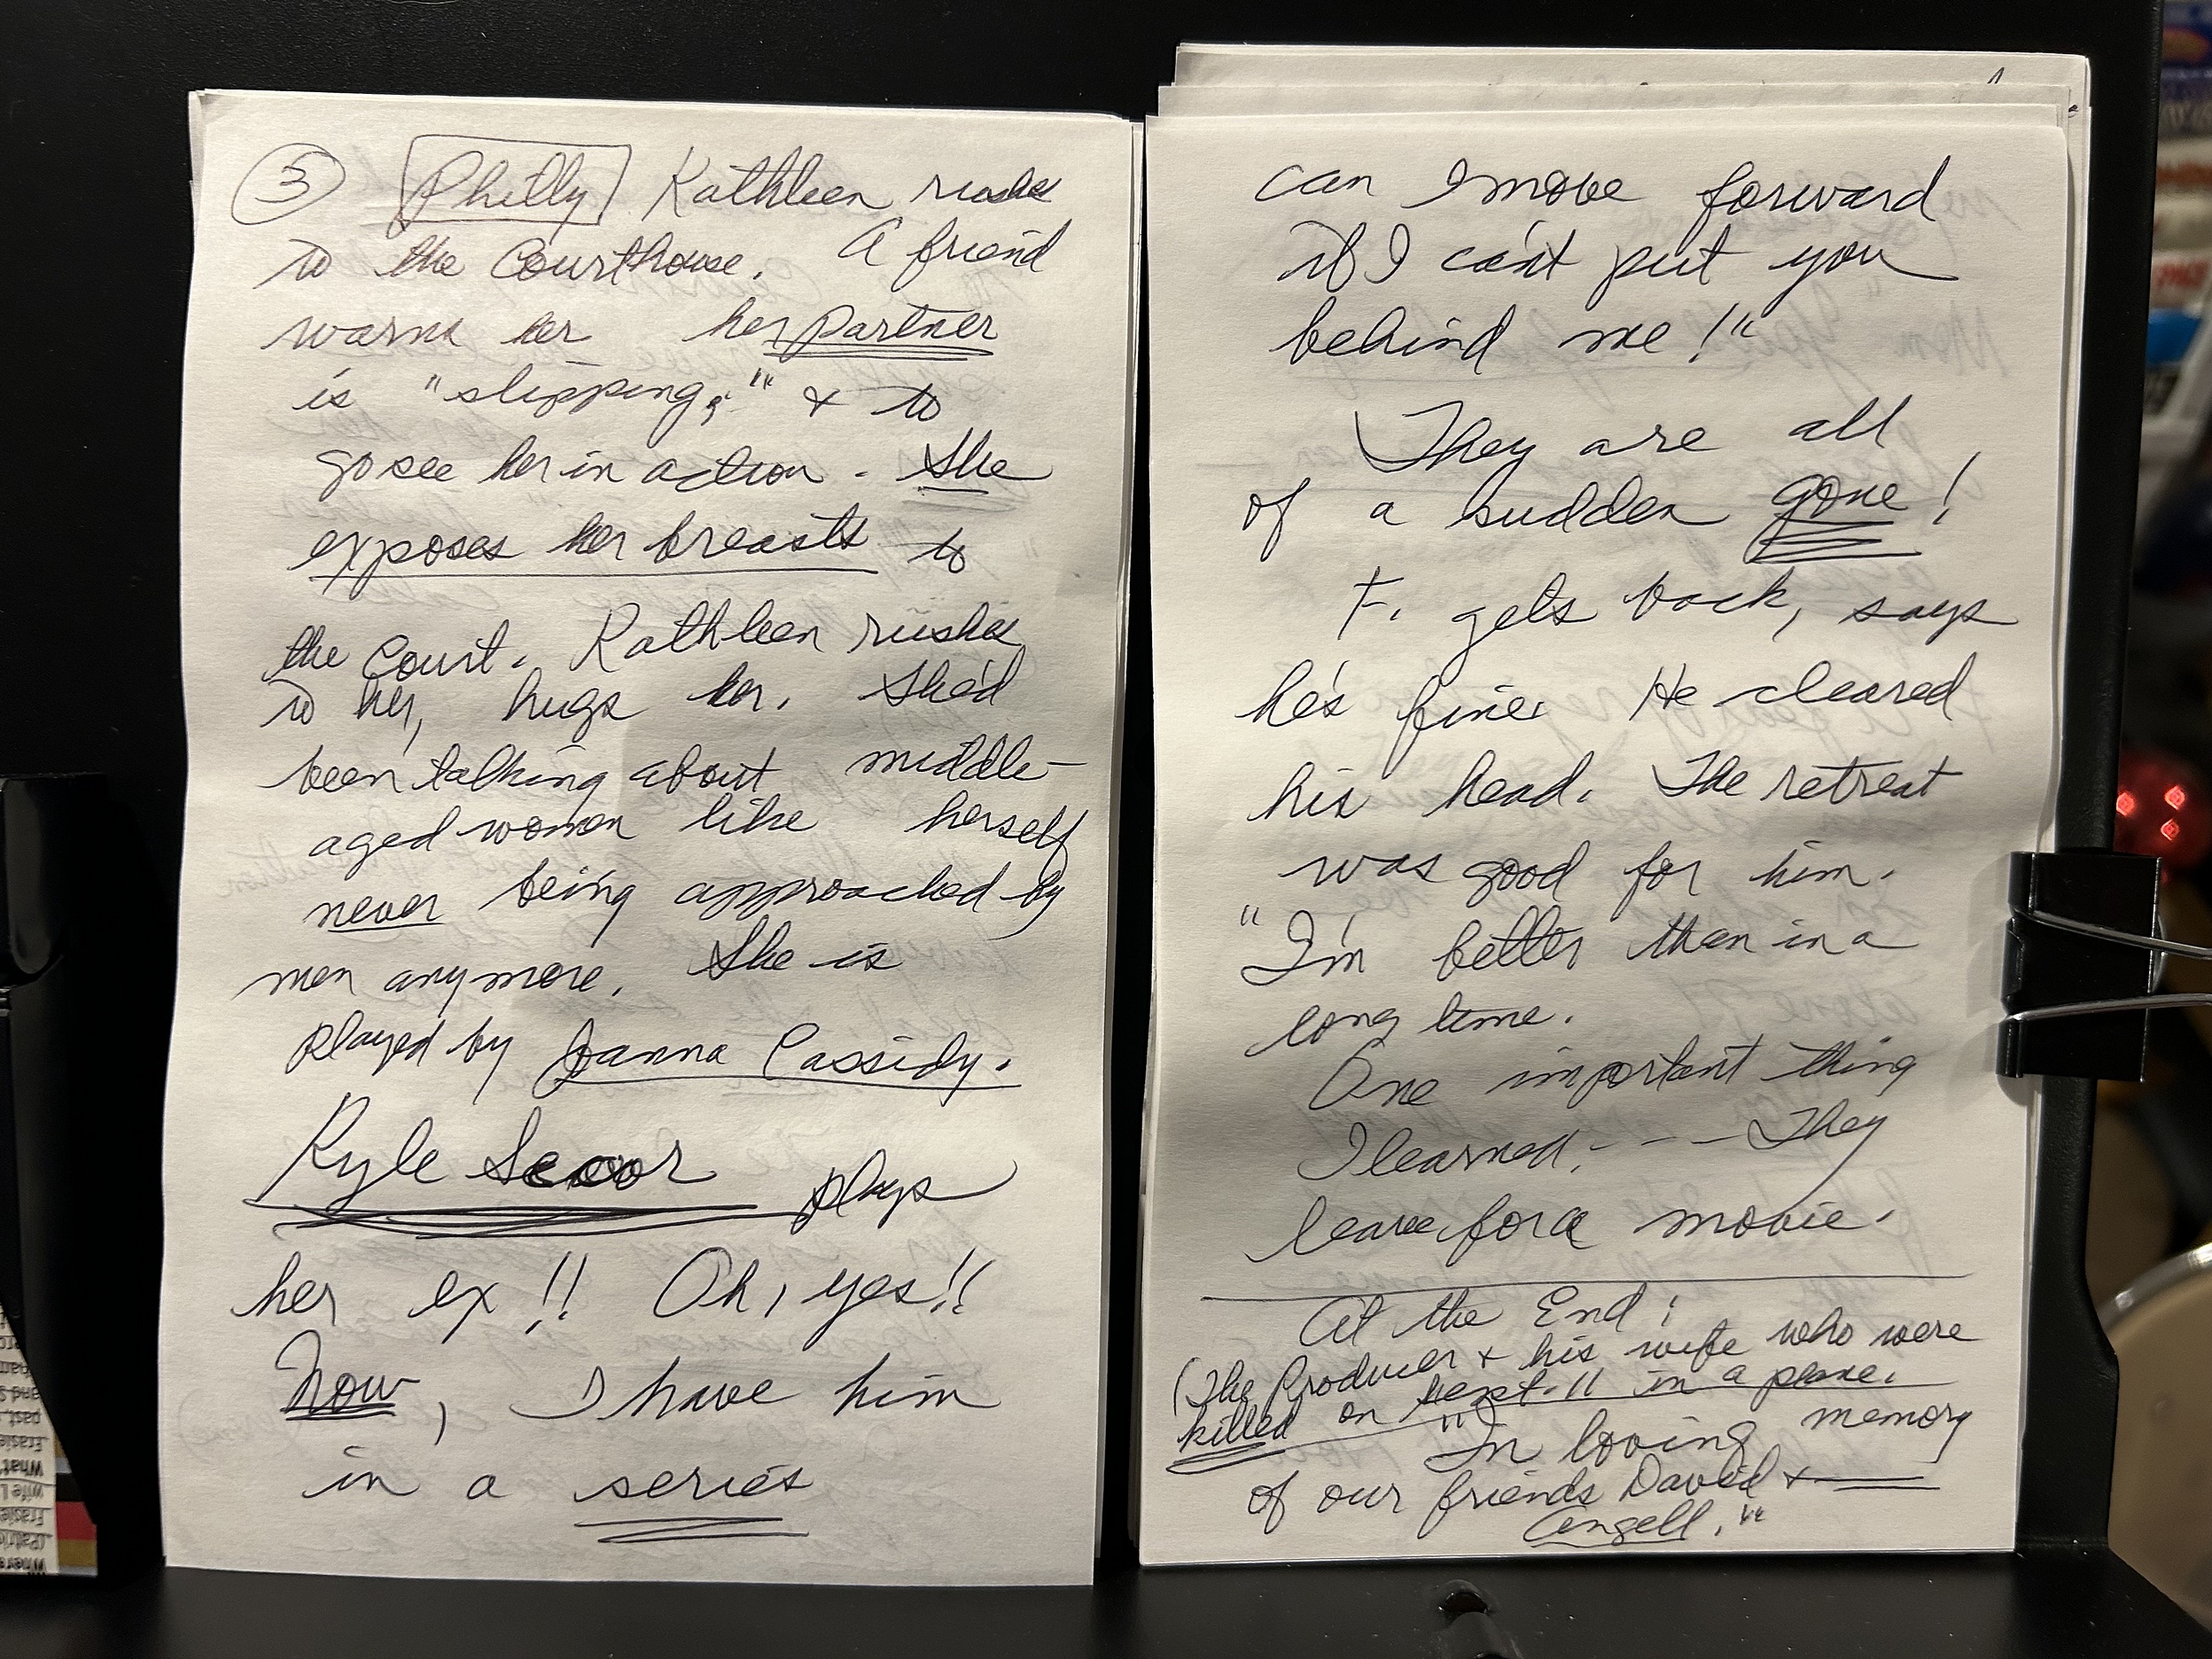 3 Philly Kathleen rushes
to the Courthouse. A friend
warns her her partner
is "slipping," & to
go see her in action. She
exposes her breasts to
the Court. Kathleen rushes
to her, hugs her. She'd
been talking about middle-
aged women like herself
never being approached by
men anymore. She is
played by Joanna Cassidy.
Kyle Secor plays
her ex!! Oh, yes!!
Now, I have him
in a series
can I move forward
if I can't put you
behind me!"
They are all
of a sudden gone!
F. gets back, says
he's fine. He cleared
his head. The retreat
was good for him.
"I'm better than in a
long time.
One important thing
I learned, - - - They
leave for a movie.
At the End:
(The Producer & his wife who were
killed on Sept. 11 in a plane.
"In loving memory
of our friends David & —
Angell."